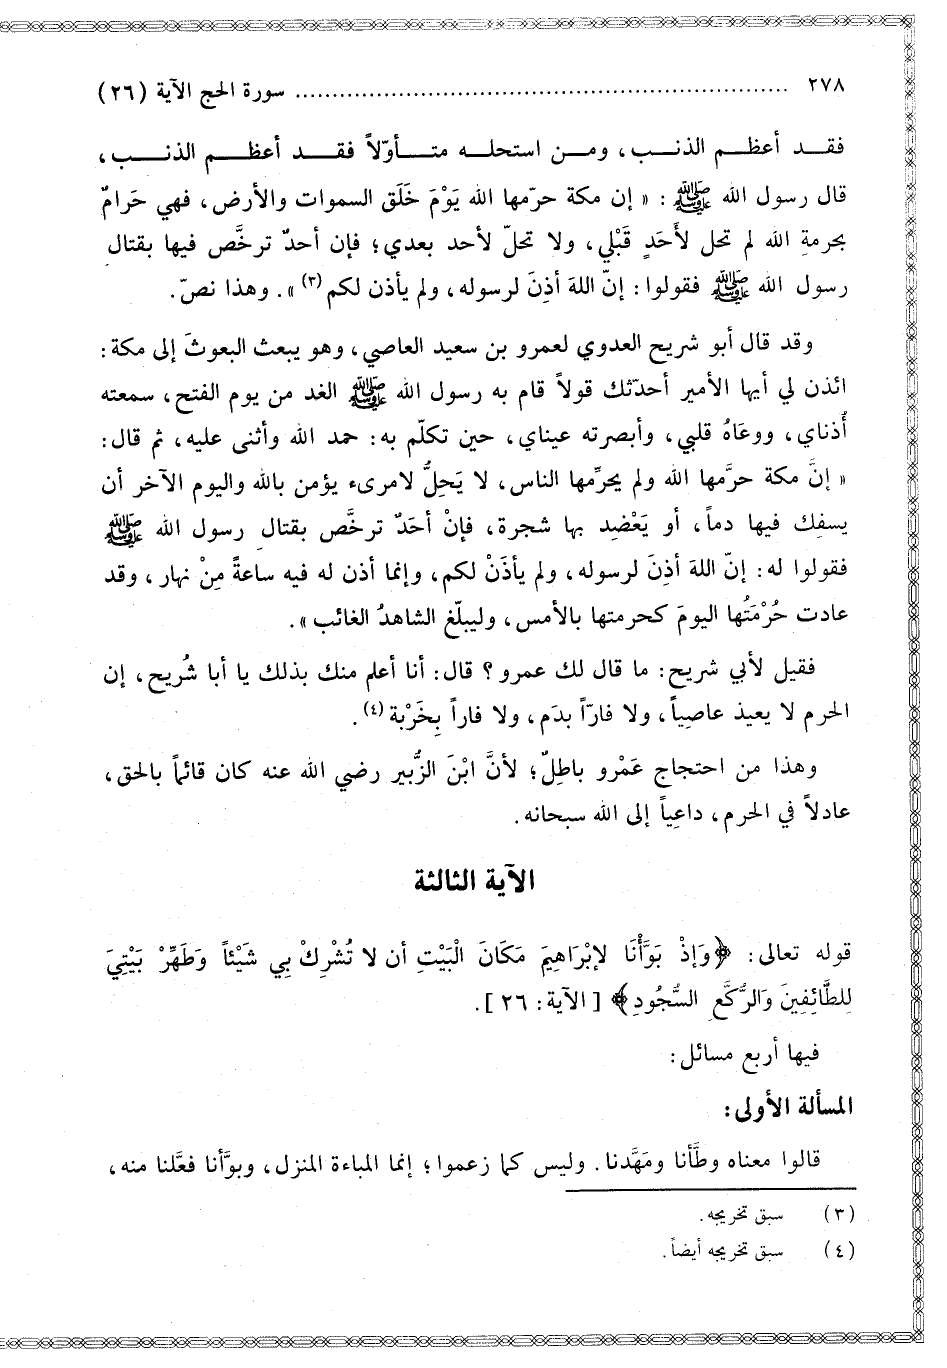 ٢٧٨ ........................................................ سورة الحج الآية (٢٦)
فقـــد أعظـــم الذنـــب، ومـــن استحلـــه متـــأوّلاً فقـــد أعظـــم الذنـــب،
قال رسول الله ﷺ: « إن مكة حرّمها الله يَوْمَ خَلَق السموات والأرض، فهي حَرامٌ
بحرمةِ الله لم تحل لأَحَدٍ قَبْلي، ولا تحلّ لأحد بعدي؛ فإن أحدٌ ترخَّص فيها بقتال
رسول الله ﷺ فقولوا: إنّ اللهَ أذِنَ لرسوله، ولم يأذن لكم (٣) ». وهذا نصّ.
وقد قال أبو شريح العدوي لعمرو بن سعيد العاصي، وهو يبعث البعوثَ إلى مكة:
ائذن لي أيها الأمير أحدّثك قولاً قام به رسول الله ﷺ الغد من يوم الفتح، سمعته
أُذناي، ووعَاهُ قلبي، وأبصرته عيناي، حين تكلّم به: حمد الله وأثنى عليه، ثم قال:
« إنَّ مكة حرَّمها الله ولم يحرِّمها الناس، لا يَحِلُّ لامرىء يؤمن بالله واليوم الآخر أن
يسفِك فيها دماً، أو يَعْضِد بها شجرة، فإنْ أحَدٌ ترخَّص بقتالِ رسول الله ﷺ
فقولوا له: إنّ اللهَ أذِنَ لرسوله، ولم يأذَنْ لكم، وإنما أذن له فيه ساعةً مِنْ نهار، وقد
عادت حُرْمَتُها اليومَ كحرمتها بالأمس، وليبلّغ الشاهدُ الغائب ».
فقيل لأبي شريح: ما قال لك عمرو؟ قال: أنا أعلم منك بذلك يا أبا شُريح، إن
الحرم لا يعيذ عاصِياً، ولا فارّاً بدَم، ولا فاراً بِخَرْبة (٤).
وهذا من احتجاج عَمْرو باطِلٌ؛ لأنَّ ابْنَ الزُّبير رضي الله عنه كان قائماً بالحق،
عادلاً في الحرم، داعِياً إلى الله سبحانه.
الآية الثالثة
قوله تعالى: ﴿وَإِذْ بَوَّأْنَا لإبْرَاهِيمَ مَكَانَ الْبَيْتِ أن لا تُشْرِكْ بِي شَيْئاً وَطَهِّرْ بَيْتِيَ
لِلطَّائِفِينَ وَالرُّكَّعِ السُّجُودِ﴾ [ الآية: ٢٦ ].
فيها أربع مسائل:
المسألة الأولى:
قالوا معناه وطَّأنا ومَهَّدنا. وليس كما زعموا؛ إنما المباءة المنزل، وبوَّأنا فعَّلنا منه،
(٣) سبق تخريجه.
(٤) سبق تخريجه أيضاً.